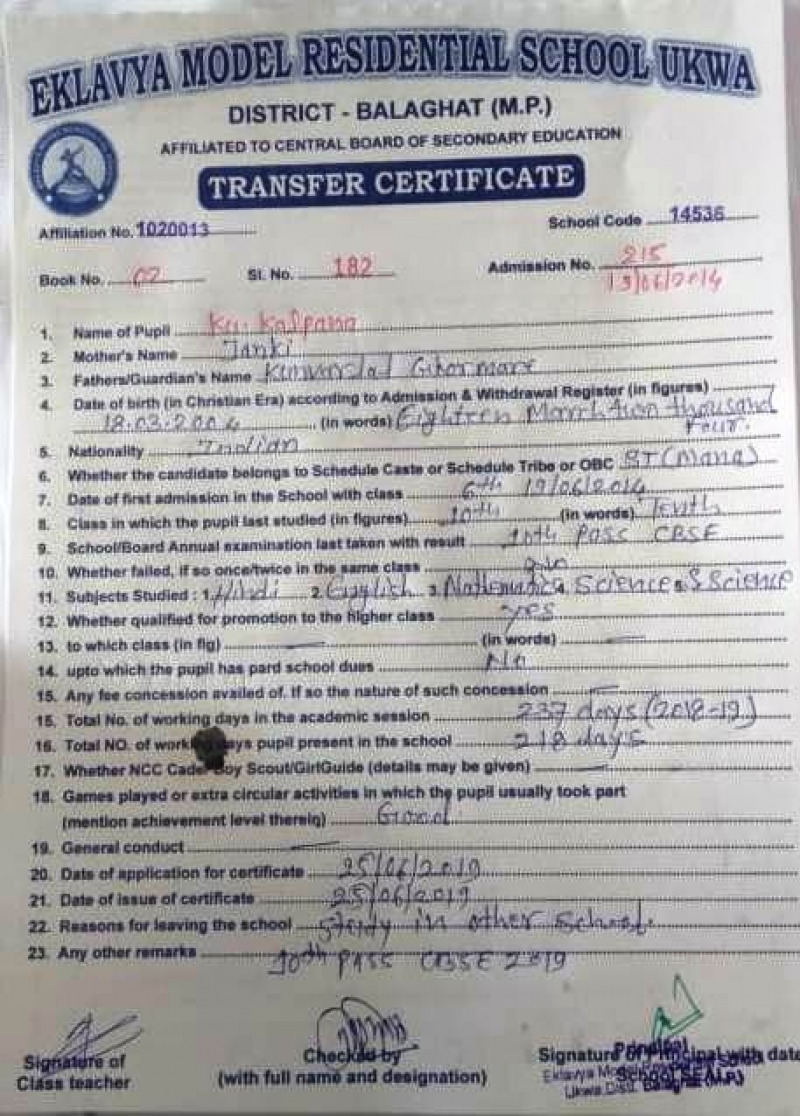 EKLAVYA MODEL RESIDENTIAL SCHOOL UKWA
DISTRICT - BALAGHAT (M.P.)
AFFILIATED TO CENTRAL BOARD OF SECONDARY EDUCATION
TRANSFER CERTIFICATE
Affiliation No. 1020013 School Code 14536
Book No. 02 Sl. No. 182 Admission No. 215
19/06/2014
1. Name of Pupil Ku. Kalpana
2. Mother's Name Janki
3. Fathers/Guardian's Name
4. Date of birth (in Christian Era) according to Admission & Withdrawal Register (in figures)
18.03.2004 (in words) Eighteen March two thousand
Four.
5. Nationality Indian
6. Whether the candidate belongs to Schedule Caste or Schedule Tribe or OBC ST (Mana)
7. Date of first admission in the School with class 6th 19/06/2014
8. Class in which the pupil last studied (in figures) 10th (in words) Tenth
9. School/Board Annual examination last taken with result 10th Pass CBSE
10. Whether failed, if so once/twice in the same class
11. Subjects Studied : 1. Hindi 2. English 3. Mathematics 4. Science 5. S Science
12. Whether qualified for promotion to the higher class yes
13. to which class (in fig) (in words)
14. upto which the pupil has pard school dues No
15. Any fee concession availed of. If so the nature of such concession
15. Total No. of working days in the academic session 237 days (2018-19)
16. Total NO. of working days pupil present in the school 218 days
17. Whether NCC Cadet Boy Scout/GirlGuide (details may be given)
18. Games played or extra circular activities in which the pupil usually took part
(mention achievement level thereig) Good
19. General conduct
20. Date of application for certificate 25/06/2019
21. Date of issue of certificate 25/06/2019
22. Reasons for leaving the school study in other school.
23. Any other remarks 10th PASS CBSE 2019
Signature of Checked by Signature of Principal with date
Class teacher (with full name and designation) School SEAL
Principal
Eklavya Model
Ukwa Distt. Balaghat (M.P.)